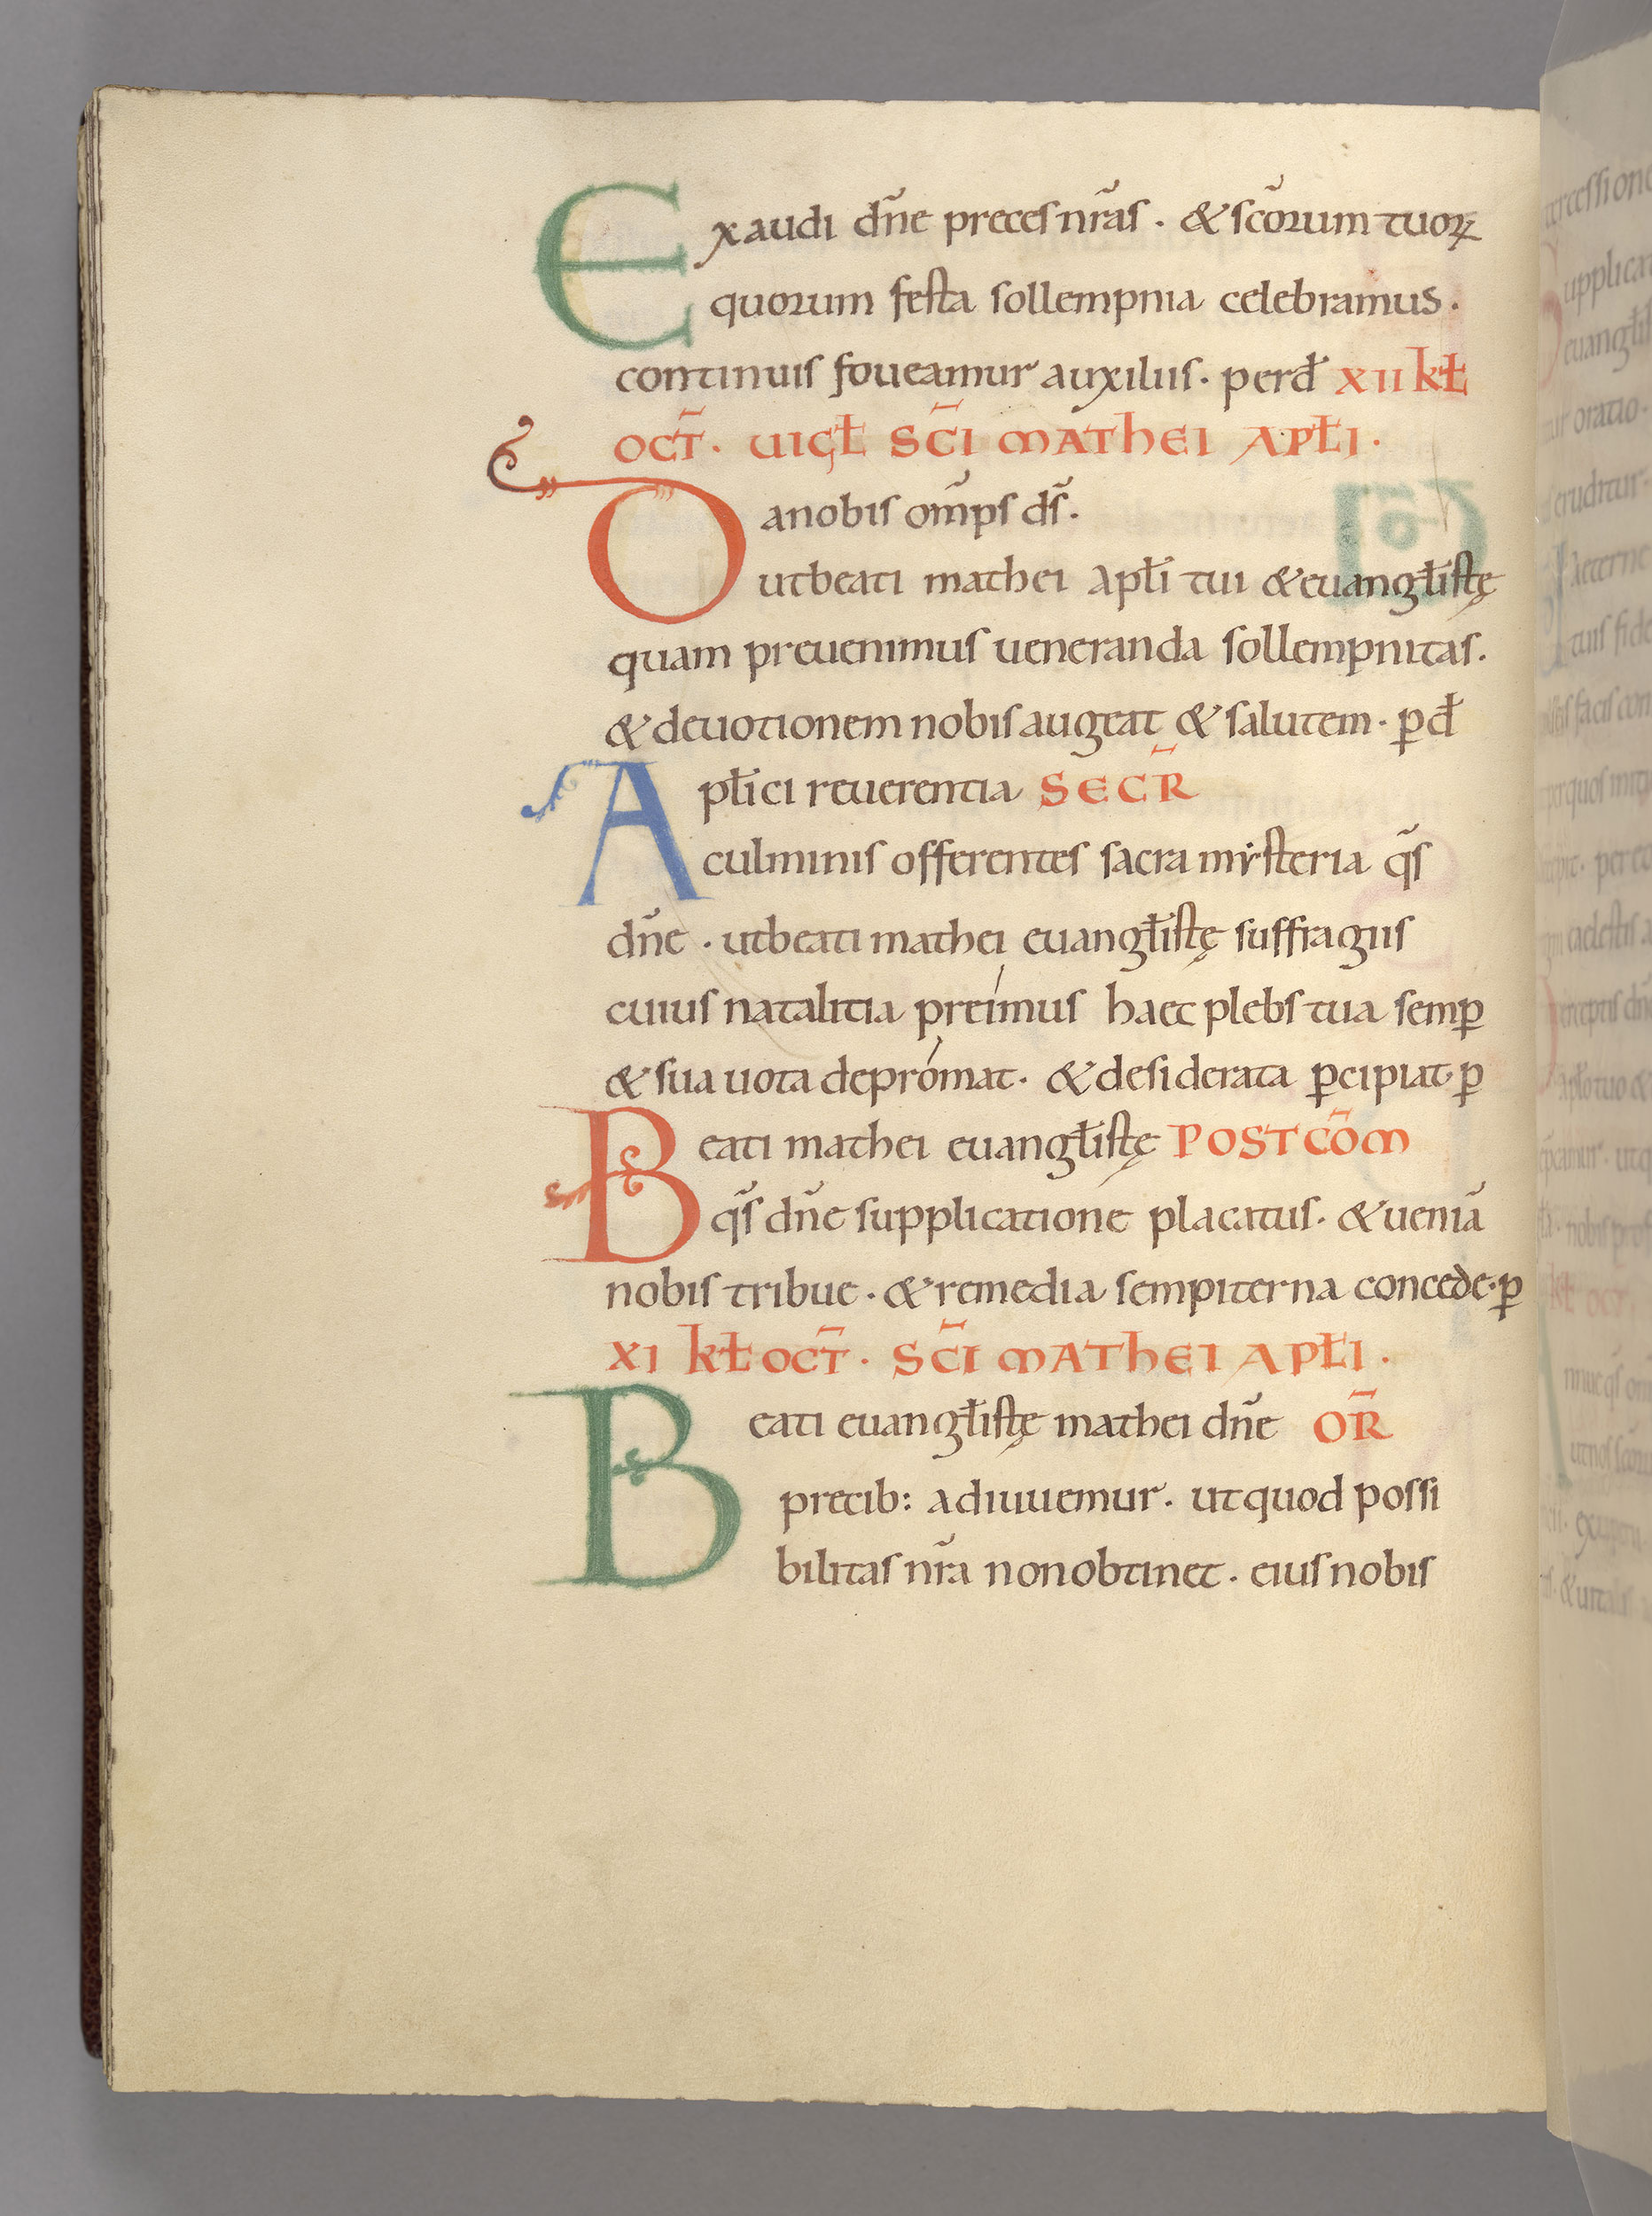 Exaudi dñe preces nr̃as · & sc̃orum tuoꝝ
quorum festa sollempnia celebramus ·
continuis foueamur auxiliis · perđ XII kł
OCT̃ · UIGł SC̃I MATHEI APŁI ·
Da nobis om̃ps ds̃ ·
ut beati mathei apłi tui & euangłistę
quam preuenimus ueneranda sollempnitas ·
& deuotionem nobis augeat & salutem · ꝑđ
Apłici reuerentia SECR̃
culminis offerentes sacra mẏsteria qs̃
dñe · ut beati mathei euangłistę suffragiis
cuius natalitia preímus haec plebs tua semꝑ
& sua uota deprómat · & desiderata ꝑcipiat · ꝑ
Beati mathei euangłistę POSTCOM̃
qs̃ dñe supplicatione placatus · & ueniã
nobis tribue · & remedia sempiterna concede · ꝑ
XI kł OCT̃ · SC̃I MATHEI APŁI ·
Beati euangłistę mathei dñe OR̃
precib: adiuuemur · ut quod possi
bilitas nr̃a non obtinet · eius nobis